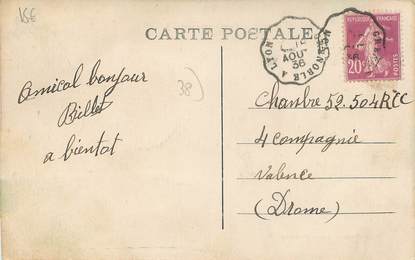 15E
CARTE POSTALE
GRENOBLE A LYON
AOUT
36
REPUBLIQUE FRANÇAISE
20
38)
Amical bonjour
Billet
a bientot
Chambre 52. 504 RCC
4 compagnie
Valence
(Drome)